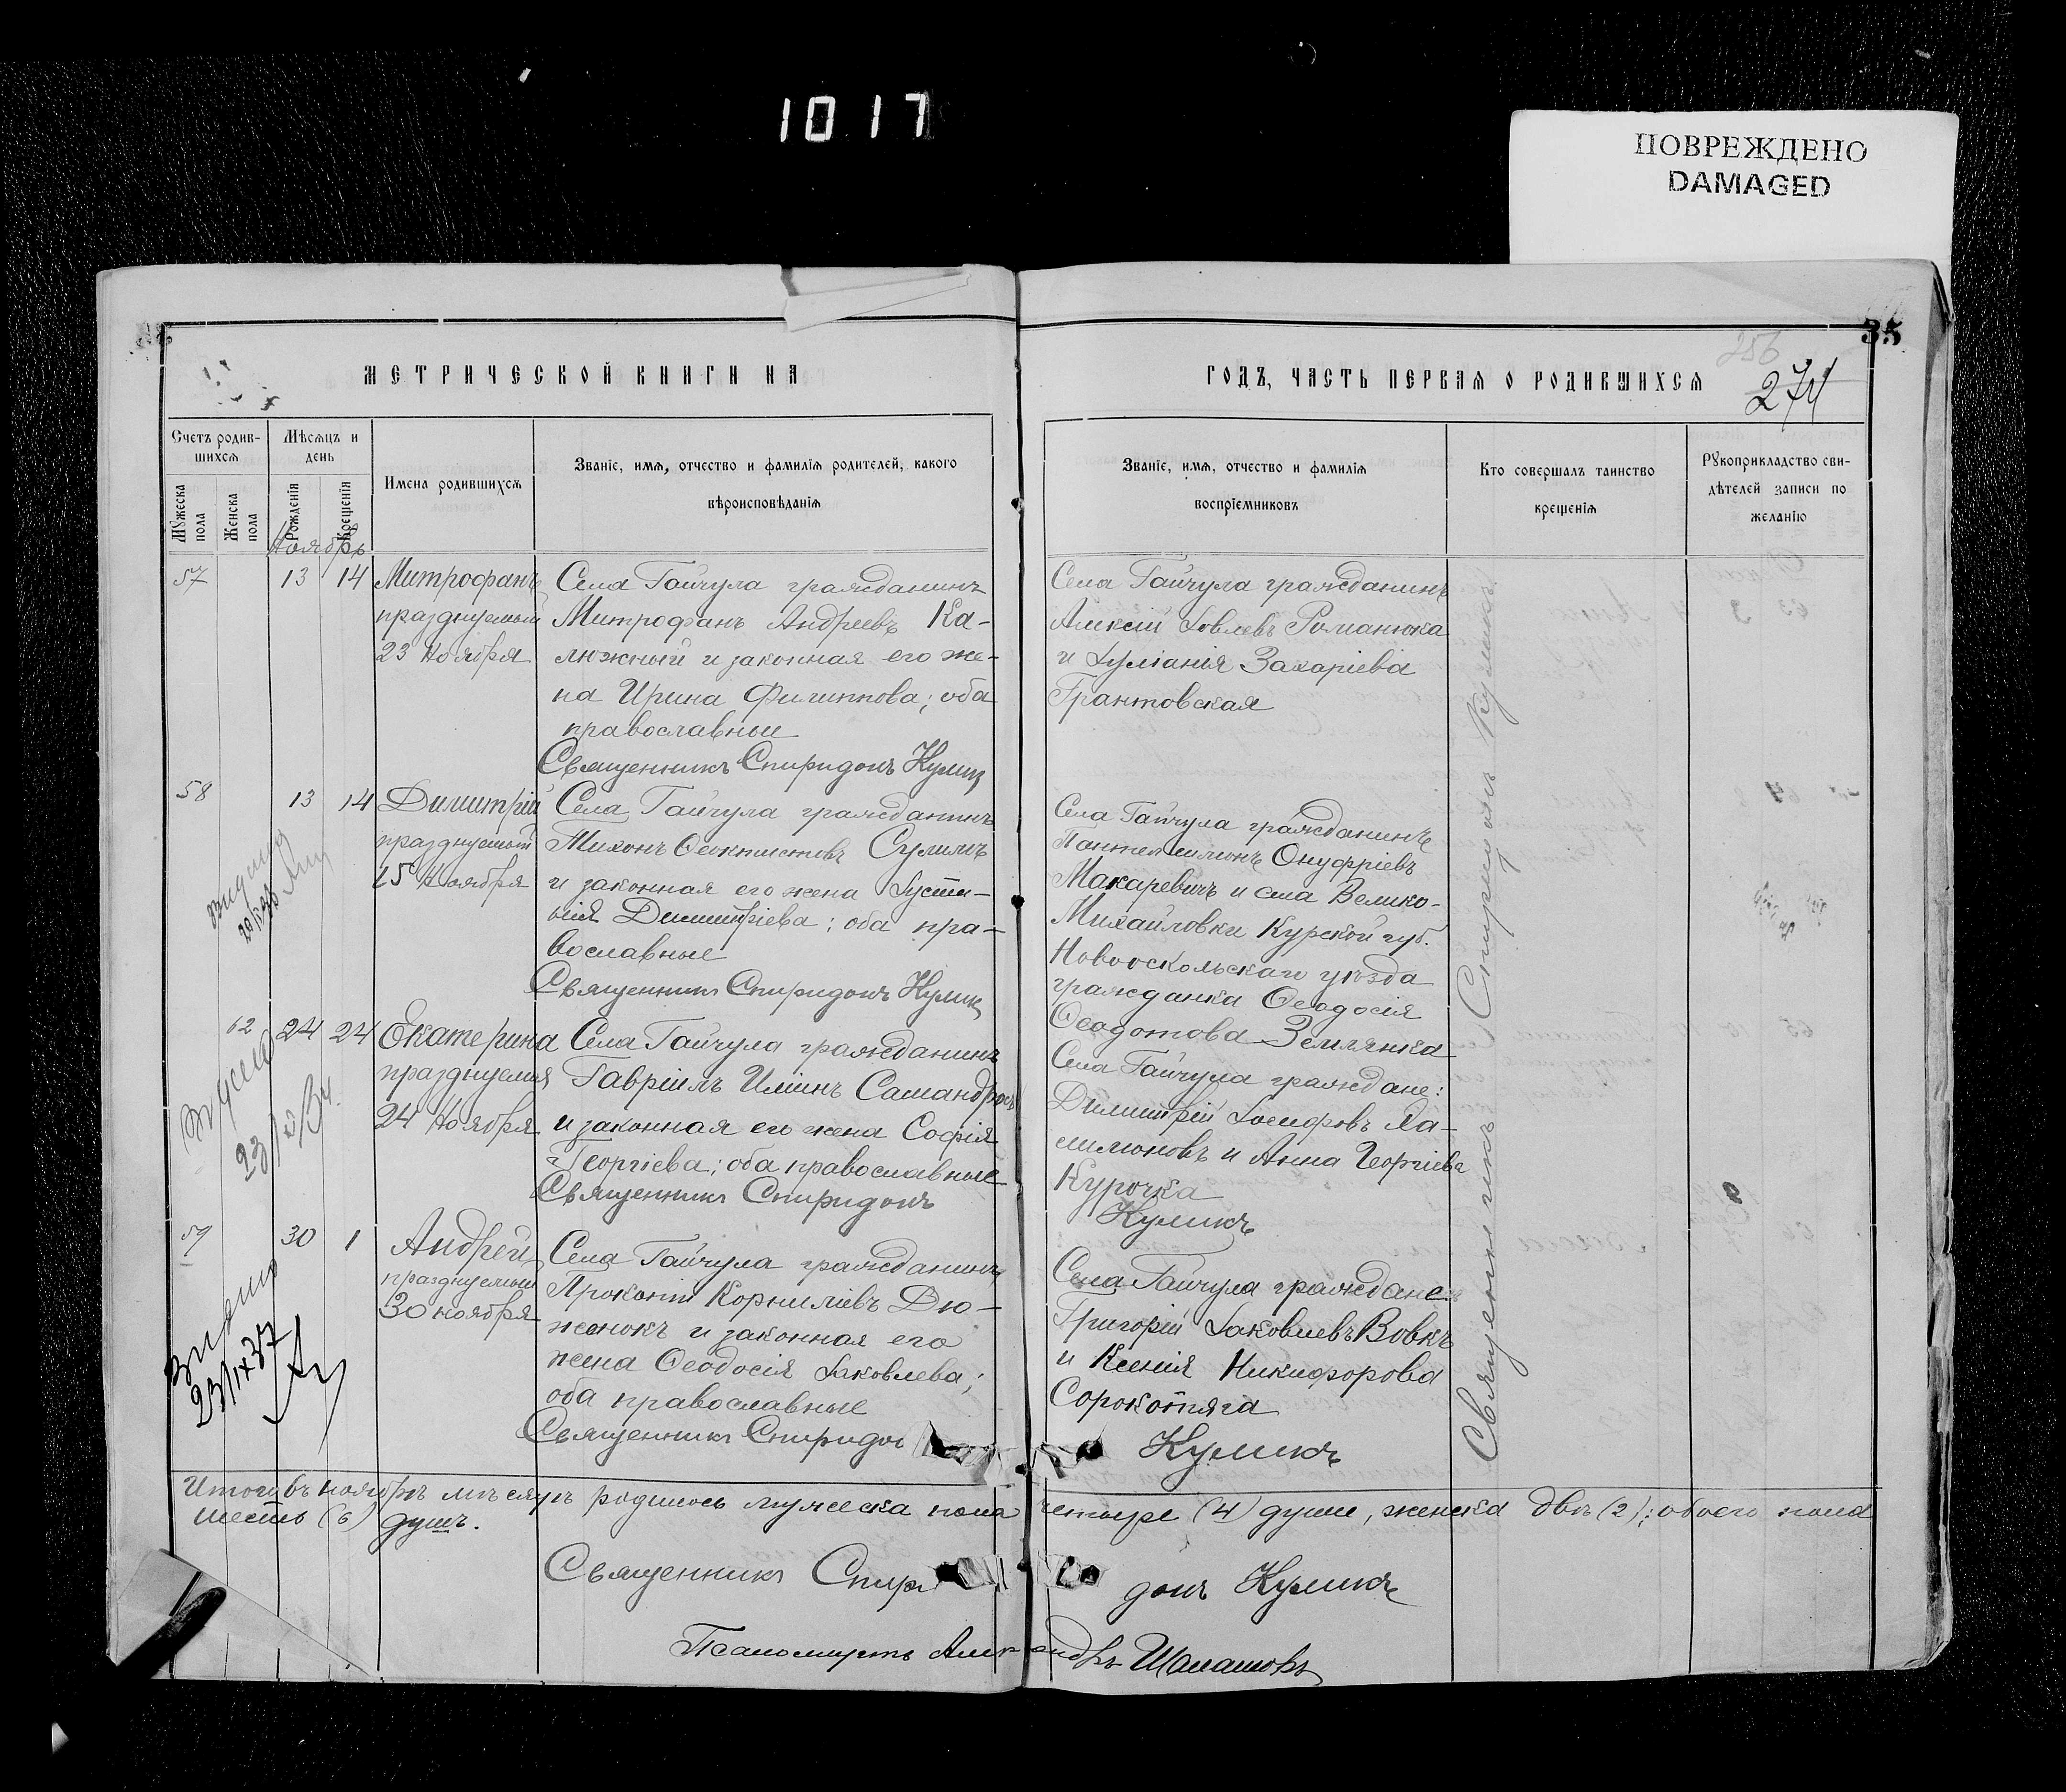 1017
ПОВРЕЖДЕНО
DAMAGED
35
МЕТРИЧЕСКОЙ КНИГИ НА
ГОДЪ, ЧАСТЬ ПЕРВАЯ О РОДИВШИХСЯ
256
274
Счетъ родив-
шихся
Мѣсяцъ и
день
Мужеска
пола
Женска
пола
Рожденія
Крещенія
Имена родившихся
Званіе, имя, отчество и фамилія родителей, какого
вѣроисповѣданія
Званіе, имя, отчество и фамилія
воспріемниковъ
Кто совершалъ таинство
крещенія
Рукоприкладство сви-
дѣтелей записи по
желанію
Ноябрь
57 13 14
Митрофанъ
празднуемый
23 Ноября
Села Гайчула гражданинъ
Митрофанъ Андреевъ Ка-
люжный и законная его же-
на Ирина Филиппова; оба
православные
Священникъ Спиридонъ Кулик
Села Гайчула гражданинъ
Алексій Іовлевъ Романюка
и Іуліанія Захаріева
Грантовская
58 13 14
Димитрій
празднуемый
15 Ноября
Села Гайчула гражданинъ
Тихонъ Ѳеоктистовъ Сулимъ
и законная его жена Іусти-
нія Димитріева; оба пра-
вославные
Священникъ Спиридонъ Кулик
Села Гайчула гражданинъ
Пантелеимонъ Онуфріевъ
Макаревичъ и села Велико-
Михайловки Курской губ.
Новооскольскаго уѣзда
гражданка Ѳеодосія
Ѳеодотова Землянка
62 24 24
Екатерина
празднуемая
24 Ноября
Села Гайчула гражданинъ
Гавріилъ Иліинъ
и законная его жена Софія
Георгіева; оба православные
Священникъ Спиридонъ
Села Гайчула граждане:
Димитрій Іосифовъ
и Анна Георгіева
Курочка
Куликъ
59 30 1
Андрей
празднуемый
30 ноября
Села Гайчула гражданинъ
Прокопій Корниліевъ Дю-
женокъ и законная его
жена Ѳеодосія Іаковлева;
оба православные
Священникъ Спиридо
Села Гайчула граждане:
Григорій Іаковлевъ Вовкъ
и Ксенія Никифорова
Сорокотяга
Куликъ
Священникъ Спиридонъ Куликъ
выдано
23/IX37
Итого въ ноябрѣ мѣсяцѣ родилось мужеска пола четыре (4) души, женска двѣ (2); обоего пола
шесть (6) душъ.
Священникъ Спиридонъ Куликъ
Псаломщикъ Александръ